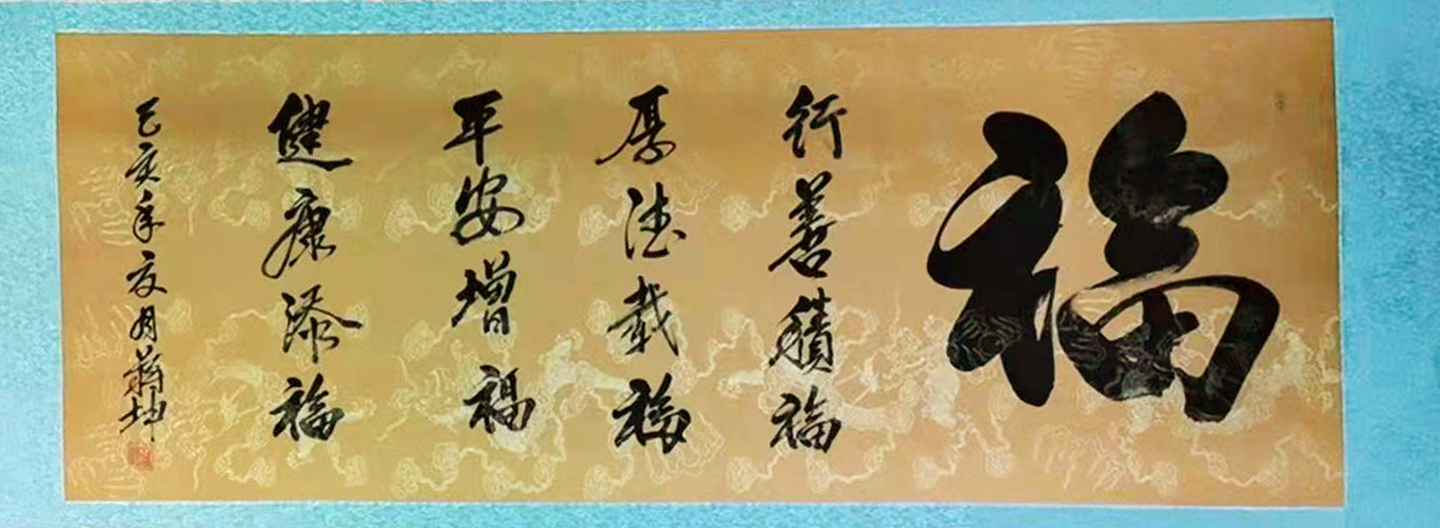 福
行善積福
厚德載福
平安增福
健康添福
己亥年亥月蔣坤